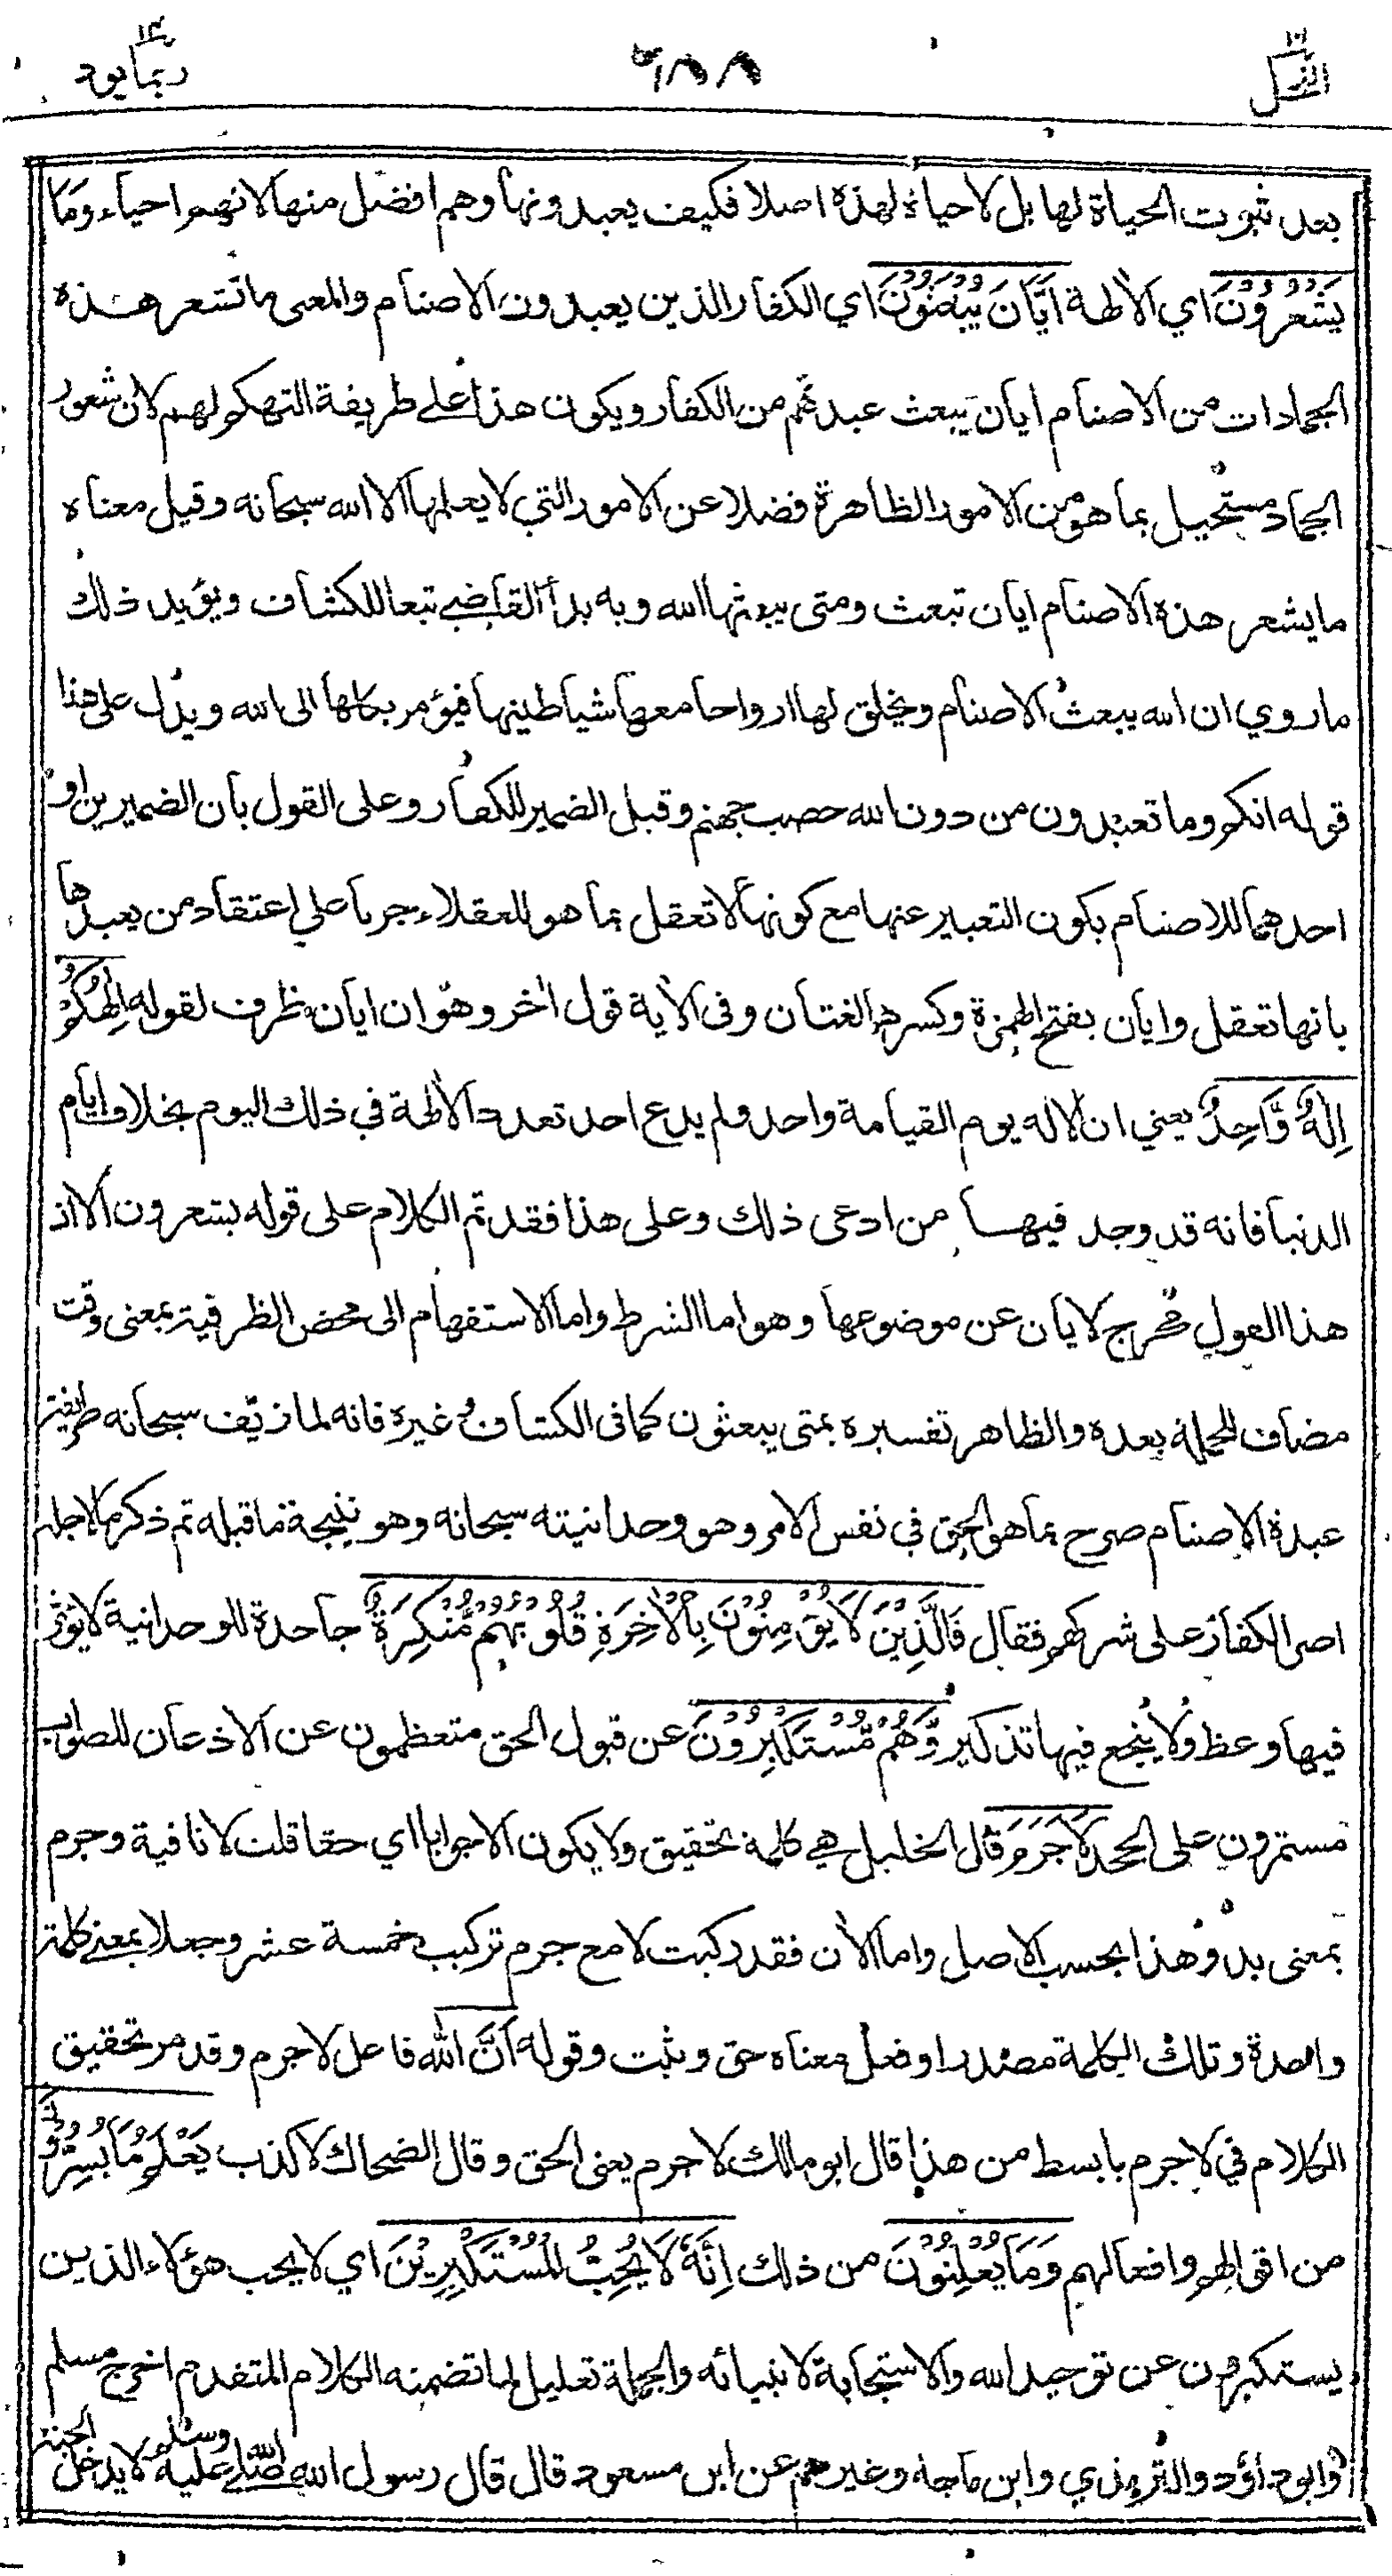 النحل ربما ١٤
بعد ثبوت الحياة لها بل لا حياة لهذه اصلا فكيف يعبدونها وهم افضل منها لانهم احياء وَمَا
يَشْعُرُوْنَ اي الاٰلهة اَيَّانَ يُبْعَثُوْنَ اي الكفار الذين يعبدون الاصنام والمعنى ما تشعر هذه
الجمادات من الاصنام ايان يبعث عبدتهم من الكفار ويكون هذا على طريقة التهكم لهم لان شعور
الجماد مستحيل بما هو من الامور الظاهرة فضلا عن الامور التي لا يعلمها الا الله سبحانه وقيل معناه
ما يشعر هذه الاصنام ايان تبعث ومتى يبعثها الله وبه بدأ القاضي تبعا للكشاف ويؤيد ذلك
ما روي ان الله يبعث الاصنام ويخلق لها ارواحا معها شياطينها فيؤمر بكلها الى الله ويدل على هذا
قوله انكم وما تعبدون من دون الله حصب جهنم وقيل الضمير للكفار وعلى القول بأن الضميرين او
احدهما للاصنام يكون التعبير عنها مع كونها لا تعقل بما هو للعقلاء جريا على اعتقاد من يعبدها
بانها تعقل وايان بفتح الهمزة وكسرها لغتان وفي الاٰية قول اٰخر وهو ان ايان ظرف لقوله اِلٰهُكُمْ
اِلٰهٌ وَّاحِدٌ يعني ان الاله يوم القيامة واحد ولم يدع احد تعدد الاٰلهة في ذلك اليوم بخلاف ايام
الدنيا فانه قد وجد فيها من ادعى ذلك وعلى هذا فقد تم الكلام على قوله يشعرون الا ان
هذا القول مخرج لايان عن موضوعها وهو اما الشرط واما الاستفهام الى محض الظرفية بمعنى وقت
مضاف للجملة بعده والظاهر تفسيره بمتى يبعثون كما في الكشاف وغيره فانه لما زيف سبحانه طريقة
عبدة الاصنام صرح بما هو الحق في نفس الامر وهو وحدانيته سبحانه وهو نتيجة ما قبله ثم ذكر ما لاجله
اصر الكفار على شركهم فقال فَالَّذِيْنَ لَا يُؤْمِنُوْنَ بِالْاٰخِرَةِ قُلُوْبُهُمْ مُّنْكِرَةٌ جاحدة للوحدانية لا يؤثر
فيها وعظ ولا ينجع فيها تذكير وَّهُمْ مُّسْتَكْبِرُوْنَ عن قبول الحق متعظمون عن الاذعان للصواب
مستمرون على الجحد لَاجَرَمَ قال الخليل هي كلمة تحقيق ولا يكون الا جوابا اي حقا قلت لا نافية وجرم
بمعنى بد وهذا بحسب الاصل واما الاٰن فقد ركبت لا مع جرم تركيب خمسة عشر وجعلا بمعنى كلمة
واحدة وتلك الكلمة مصدر او فعل معناه حق وثبت وقوله اَنَّ اللّٰهَ فاعل لا جرم وقد مر تحقيق
الكلام في لا جرم بابسط من هذا قال ابو مالك لا جرم يعني الحق وقال الضحاك لا كذب يَعْلَمُ مَا يُسِرُّوْنَ
من اقوالهم وافعالهم وَمَا يُعْلِنُوْنَ من ذلك اِنَّهٗ لَا يُحِبُّ الْمُسْتَكْبِرِيْنَ اي لا يحب هؤلاء الذين
يستكبرون عن توحيد الله والاستجابة لانبيائه والجملة تعليل لما تضمنه الكلام المتقدم اخرج مسلم
وابو داؤد والترمذي وابن ماجة وغيرهم عن ابن مسعود قال قال رسول الله صلى الله عليه وسلم لا يدخل الجنة